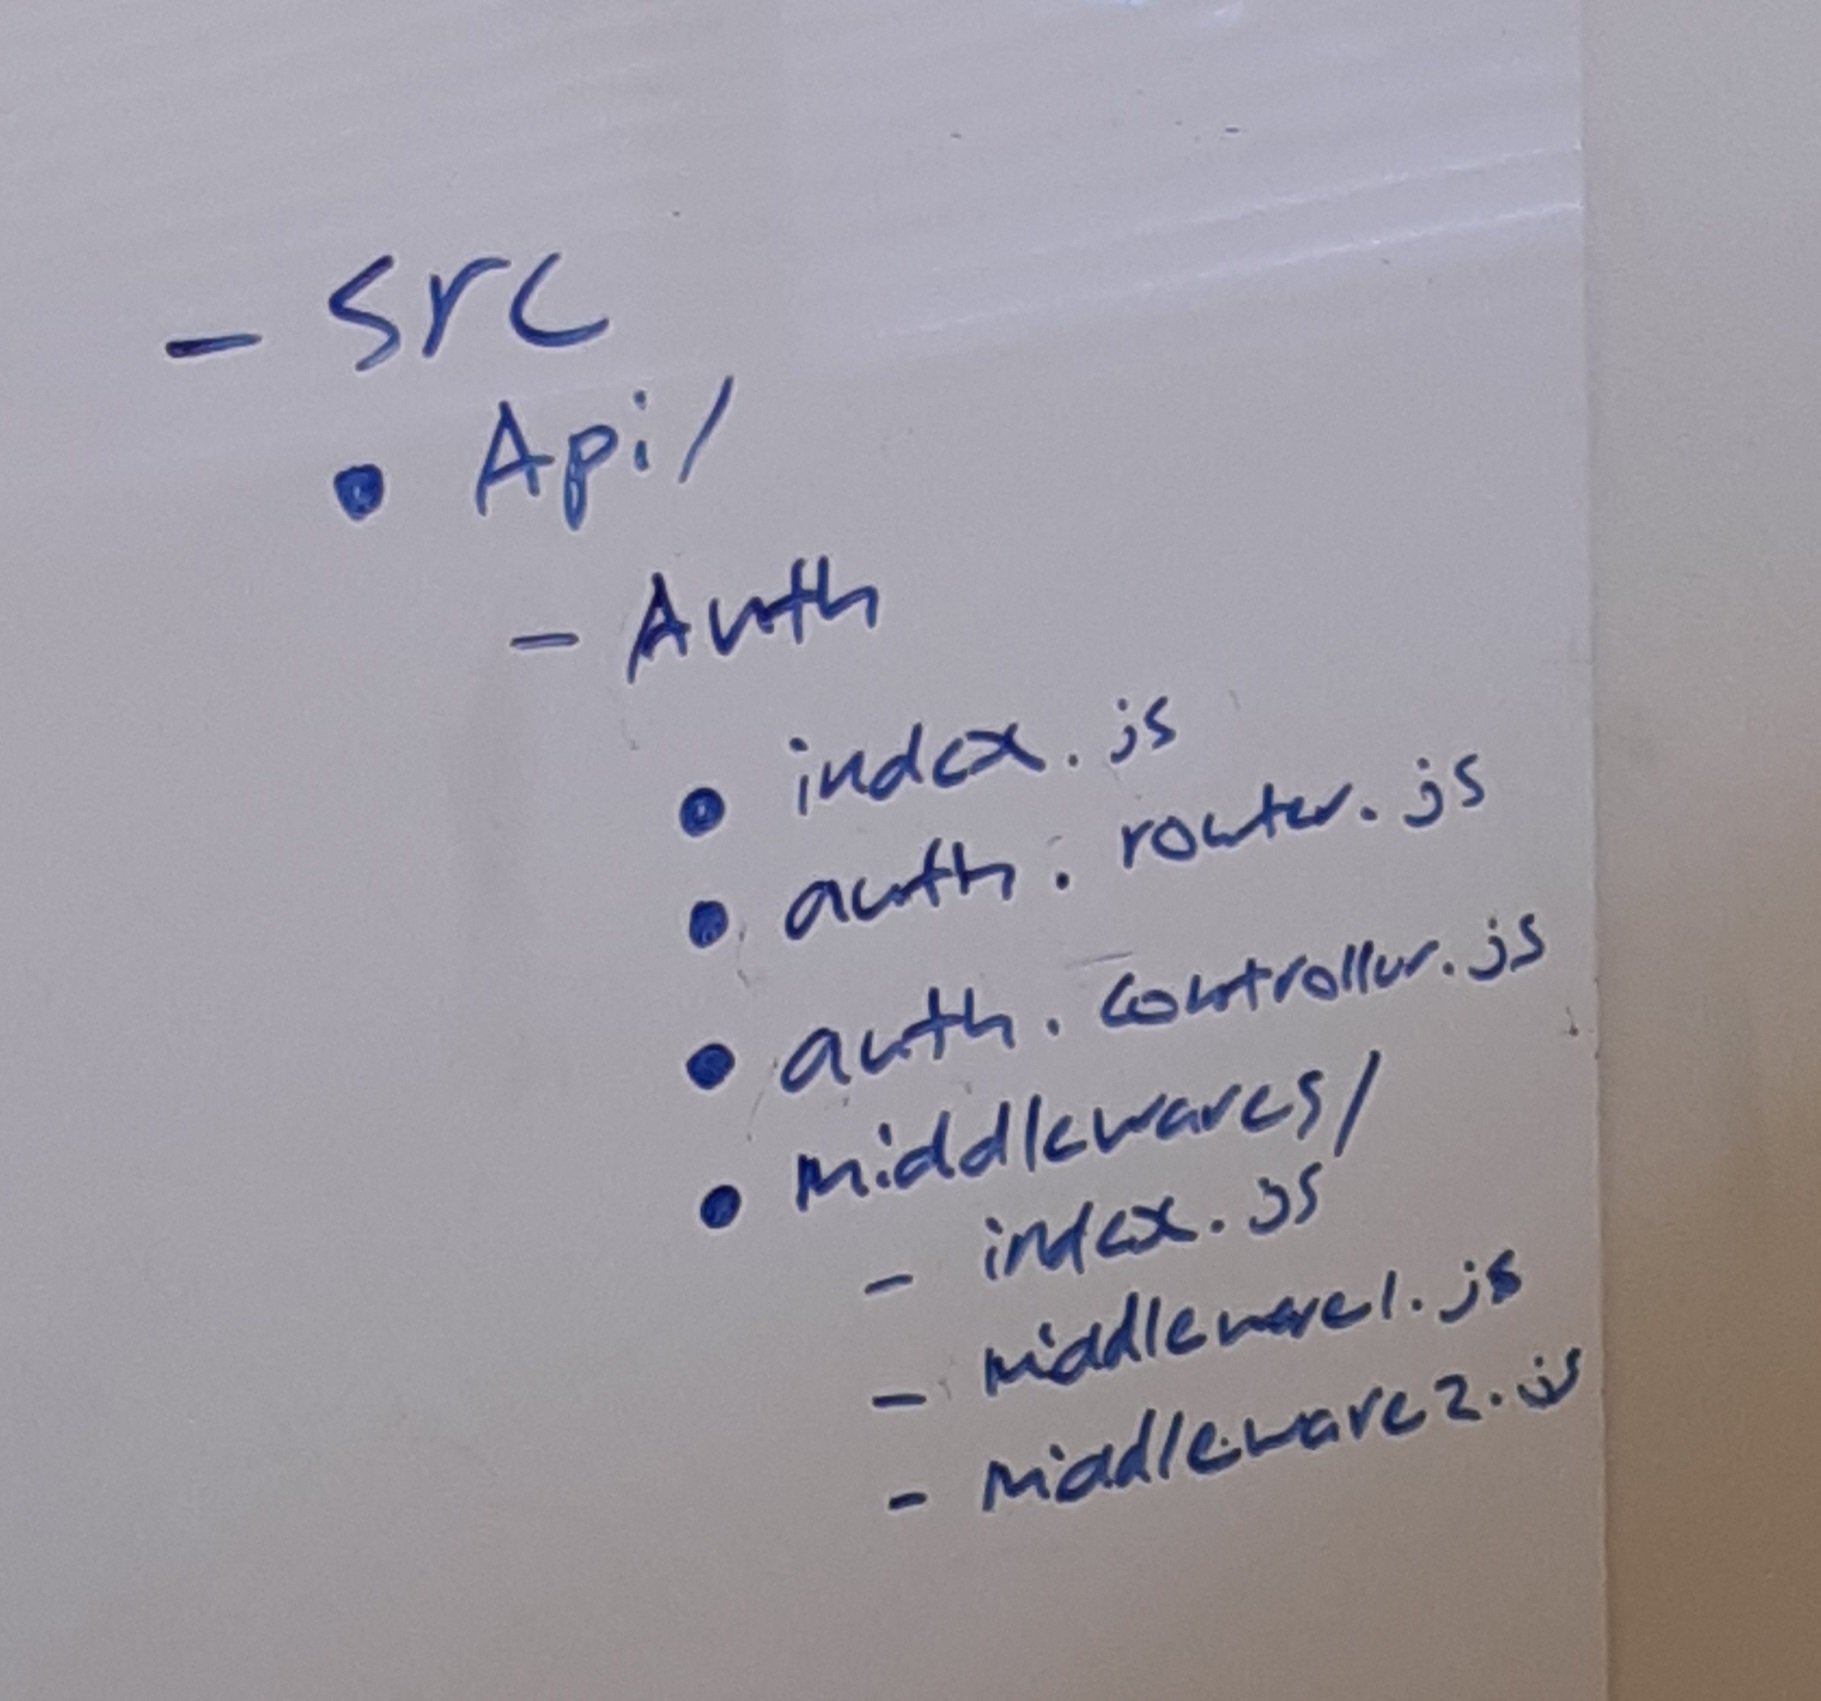 - src
• Api/
- Auth
• index.js
• auth.router.js
• auth.controller.js
• middlewares/
- index.js
- middleware1.js
- middleware2.js